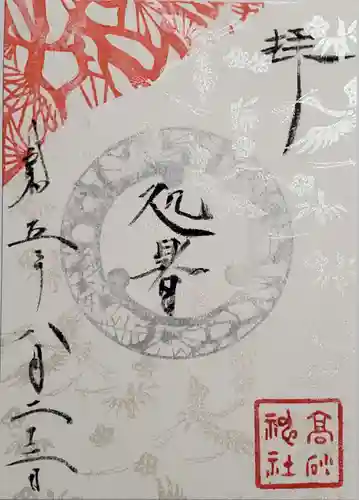 拝
処暑
令和五年八月二十三日
高砂
神社